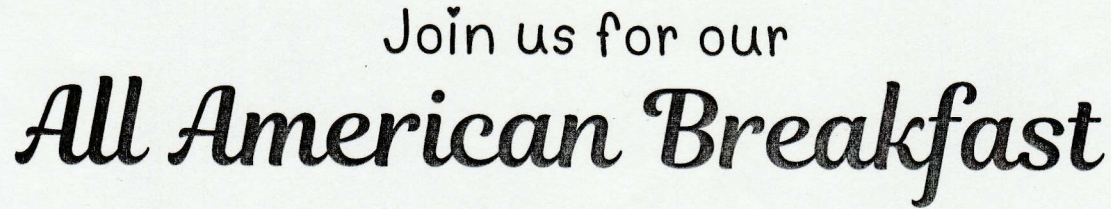 Join us for our
All American Breakfast